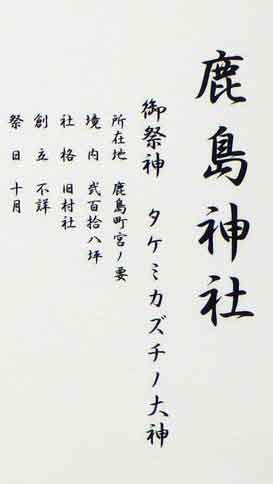 鹿島神社
御祭神 タケミカズチノ大神
所在地 鹿島町宮ノ要
境内 弐百拾八坪
社格 旧村社
創立 不詳
祭日 十月